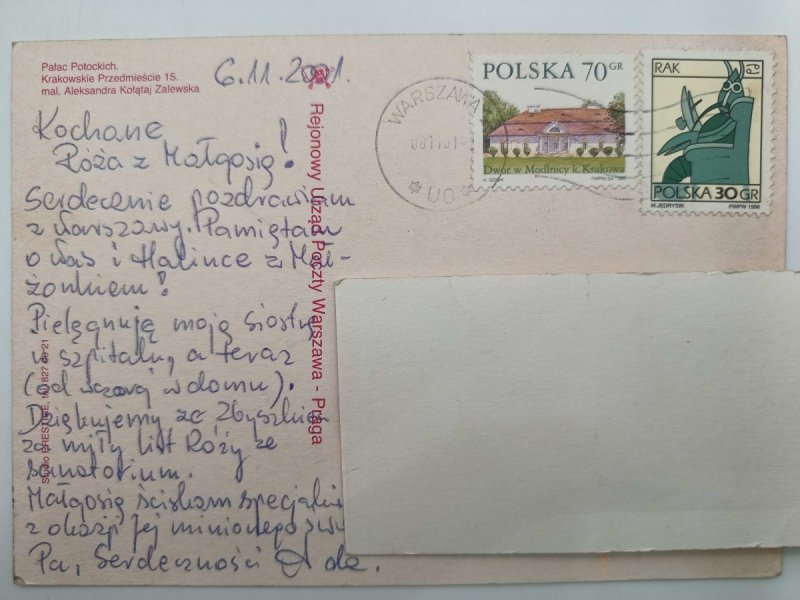 Pałac Potockich.
Krakowskie Przedmieście 15.
mal. Aleksandra Kołątaj Zalewska
6.11.2001.
Kochane
Róża z Małgosią!
Serdecznie pozdrawiam
z Warszawy. Pamiętam
o Was i Halince z Mał-
żonkiem!
Pielęgnuję moją siostrę
w szpitalu, a teraz
(od wczoraj w domu).
Dziękujemy ze Zbyszkiem
za miły list Róży ze
sanatorium.
Małgosię ściskam specjalnie
z okazji jej minionego
Pa, Serdeczności
Rejonowy Urząd Poczty Warszawa - Praga
Studio PRESTIGE, 827
WARSZAWA
UO
POLSKA 70 GR
Dwór w Modlnicy k. Krakowa
PWPW
RAK
POLSKA 30 GR
M.JEDRYSIK PWPW 1996